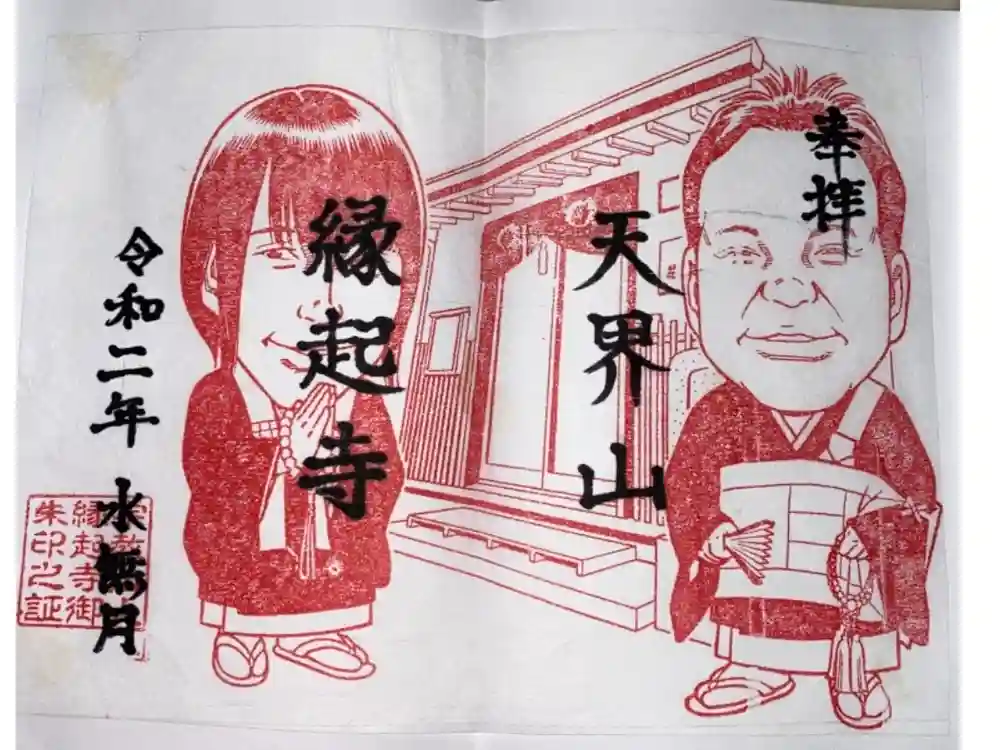 奉拝
天界山
縁起寺
令和二年 水無月
縁起寺御
朱印之証